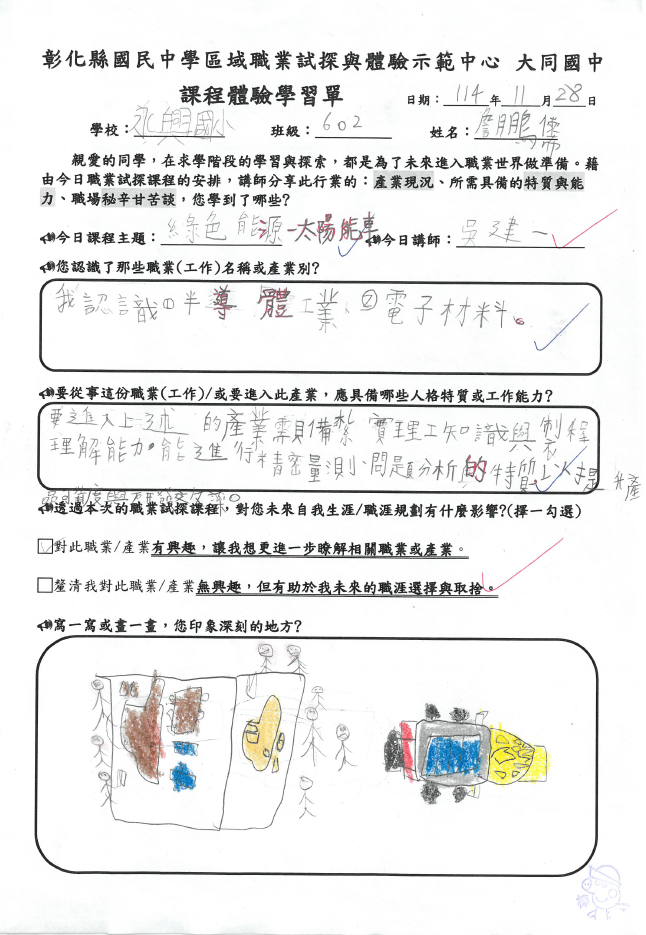 彰化縣國民中學區域職業試探與體驗示範中心 大同國中
課程體驗學習單
日期：114年11月28日
學校：永興國小 班級：602 姓名：詹鵬儒
親愛的同學，在求學階段的學習與探索，都是為了未來進入職業世界做準備。藉
由今日職業試探課程的安排，講師分享此行業的：產業現況、所需具備的特質與能
力、職場秘辛甘苦談，您學到了哪些？
今日課程主題：綠色能源-太陽能車 今日講師：吳建一
您認識了那些職業(工作)名稱或產業別？
我認識①半導體工業、②電子材料。
要從事這份職業(工作)/或要進入此產業，應具備哪些人格特質或工作能力？
要進入上述的產業需具備紮實理工知識與製程
理解能力。能進行精密量測、問題分析的特質，以提升產
透過本次的職業試探課程，對您未來自我生涯/職涯規劃有什麼影響？(擇一勾選)
對此職業/產業有興趣，讓我想更進一步瞭解相關職業或產業。
釐清我對此職業/產業無興趣，但有助於我未來的職涯選擇與取捨。
寫一寫或畫一畫，您印象深刻的地方？